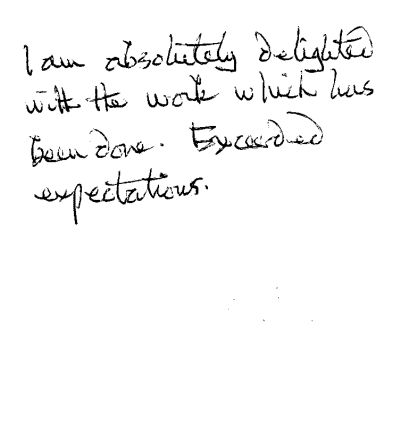 I am absolutely delighted
with the work which has
been done. Exceeded
expectations.